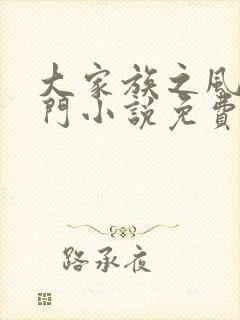 大家族之風
門小説免費
路承夜